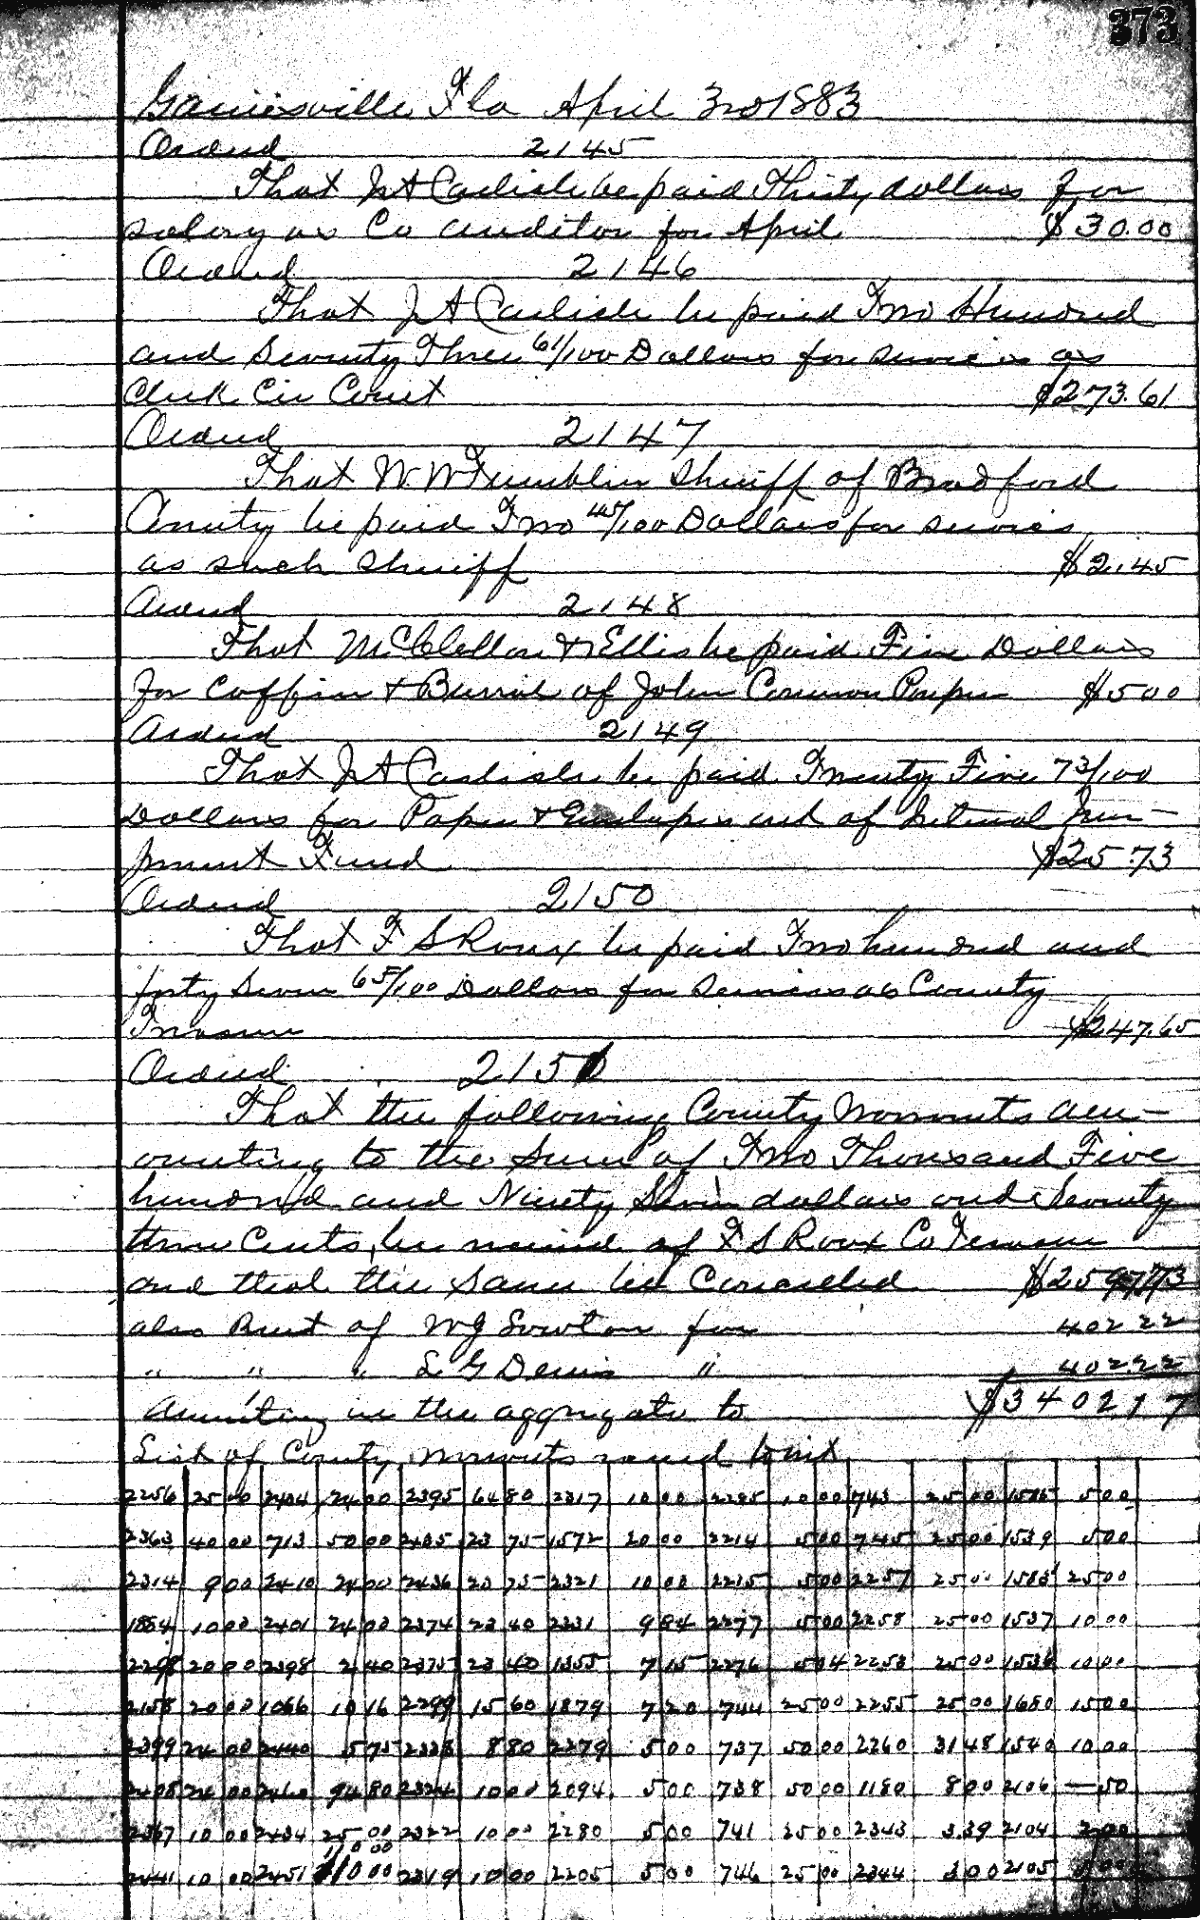 373
Gainesville Fla April 3rd 1883
Ordered 2145
That J A Carlisle be paid Thirty dollars for
salary as Co auditor for April $30.00
Ordered 2146
That J A Carlisle be paid Two Hundred
and Seventy Three 61/100 Dollars for services as
Clerk Cir Court $273.61
Ordered 2147
That W. W Tumblin Sheriff of Bradford
County be paid Two 45/100 Dollars for services
as such Sheriff $2.45
Ordered 2148
That McClellan & Ellis be paid Five Dollars
for Coffin & Burial of John Pauper $5 00
Ordered 2149
That J A Carlisle be paid Twenty Five 73/100
Dollars for Paper & Envelopes out of Internal Im-
provment Fund $25.73
Ordered 2150
That F S Roux be paid Two hundred and
forty Seven 65/100 Dollars for Services as County
Treasurer $247.65
Ordered 2151
That the following County Warrants am-
ounting to the Sum of Two Thousand Five
hundred and Ninety Seven dollars and Seventy
three Cents be received of F S Roux Co Treasurer
and that the same be Cancelled $2597.73
also Rect of for 402 22
" " " L G Dennis " 402 22
Amounting in the aggregate to $3402 17
List of County Warrants to wit
2256 25 00 2404 24 00 2395 64 80 2317 10 00 2285 10 00 743 25 00 5 00
2363 40 00 713 50 00 2405 23 75 1572 20 00 2214 5 00 745 25 00 1539 5 00
2314 9 00 2410 24 00 2436 23 75 2321 10 00 2215 5 00 2257 25 00 25 00
1884 10 00 2401 24 00 2374 23 40 2331 9 84 2277 5 00 2258 25 00 1537 10 00
2298 20 00 2398 2 40 2375 23 40 1355 7 15 2276 5 04 2253 25 00 1536 10 00
2158 20 00 1066 10 16 2299 15 60 1879 7 20 744 25 00 2255 25 00 1680 15 00
2399 24 00 2440 5 75 8 80 2279 5 00 737 50 00 2260 31 48 1540 10 00
2408 24 00 2460 94 80 2324 10 00 2094 5 00 738 50 00 1180 8 00 2106 — 50
2367 10 00 2434 25 00 2322 10 00 2280 5 00 741 25 00 2343 3 39 2104 2 00
2441 10 00 2451 110 00 2319 10 00 2205 5 00 746 25 00 2344 3 00 2105